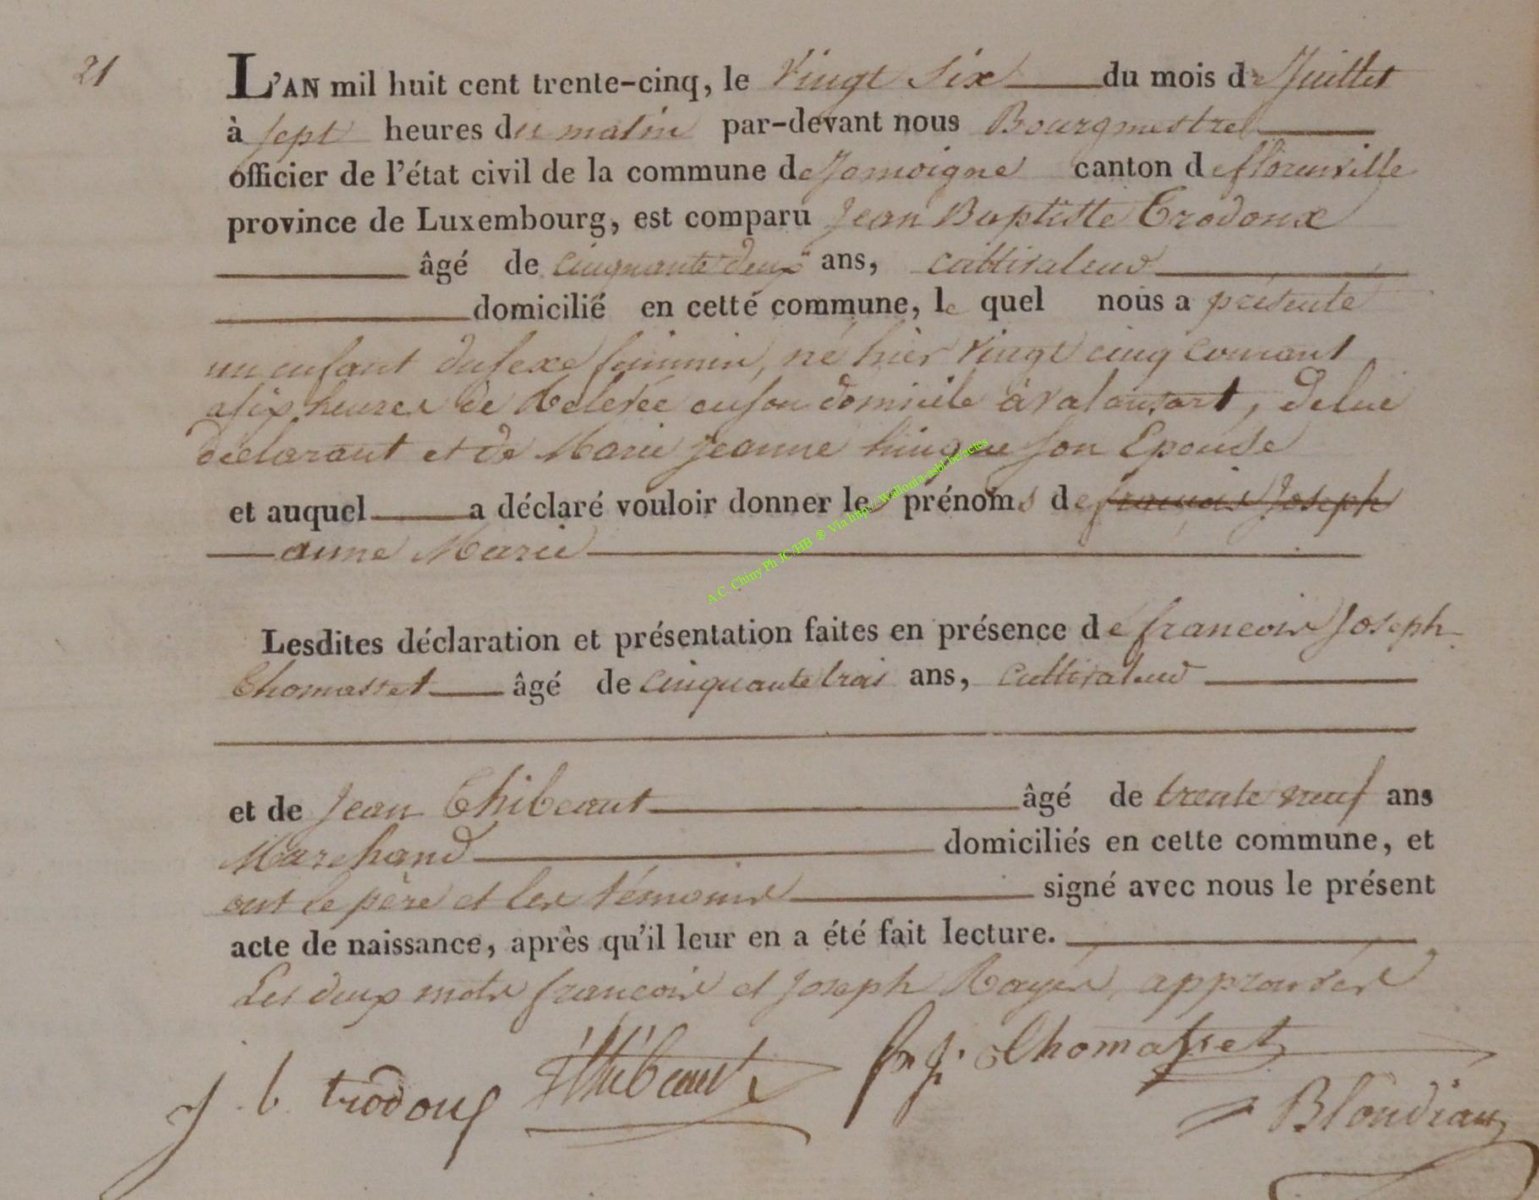 21
L'AN mil huit cent trente-cinq, le Vingt Six du mois de Juillet
à sept heures du matin par-devant nous Bourgmestre
officier de l'état civil de la commune de Jamoigne canton de florenville
province de Luxembourg, est comparu Jean Baptiste Trodoux
âgé de cinquante deux ans, cultivateur
domicilié en cette commune, le quel nous a présenté
un enfant du sexe féminin, né hier vingt cinq courant
a six heures de Relevée en son domicile à Valansart, de lui
déclarant et de Marie Jeanne son Epouse
et auquel a déclaré vouloir donner les prénoms de françois Joseph
anne Marie
Lesdites déclaration et présentation faites en présence de francois Joseph
Thomasset âgé de cinquante trois ans, cultivateur
et de Jean Thibeaut âgé de trente neuf ans
Marchand domiciliés en cette commune, et
ont le père et les témoins signé avec nous le présent
acte de naissance, après qu'il leur en a été fait lecture.
Les deux mots francois et Joseph Rayés, approuvés
J. b. trodoux Thibeaut fr. j. Thomasset
Blondiau
A.C. Chiny Ph JC/HB ® Via http://Wallonia-asbl.be/actes